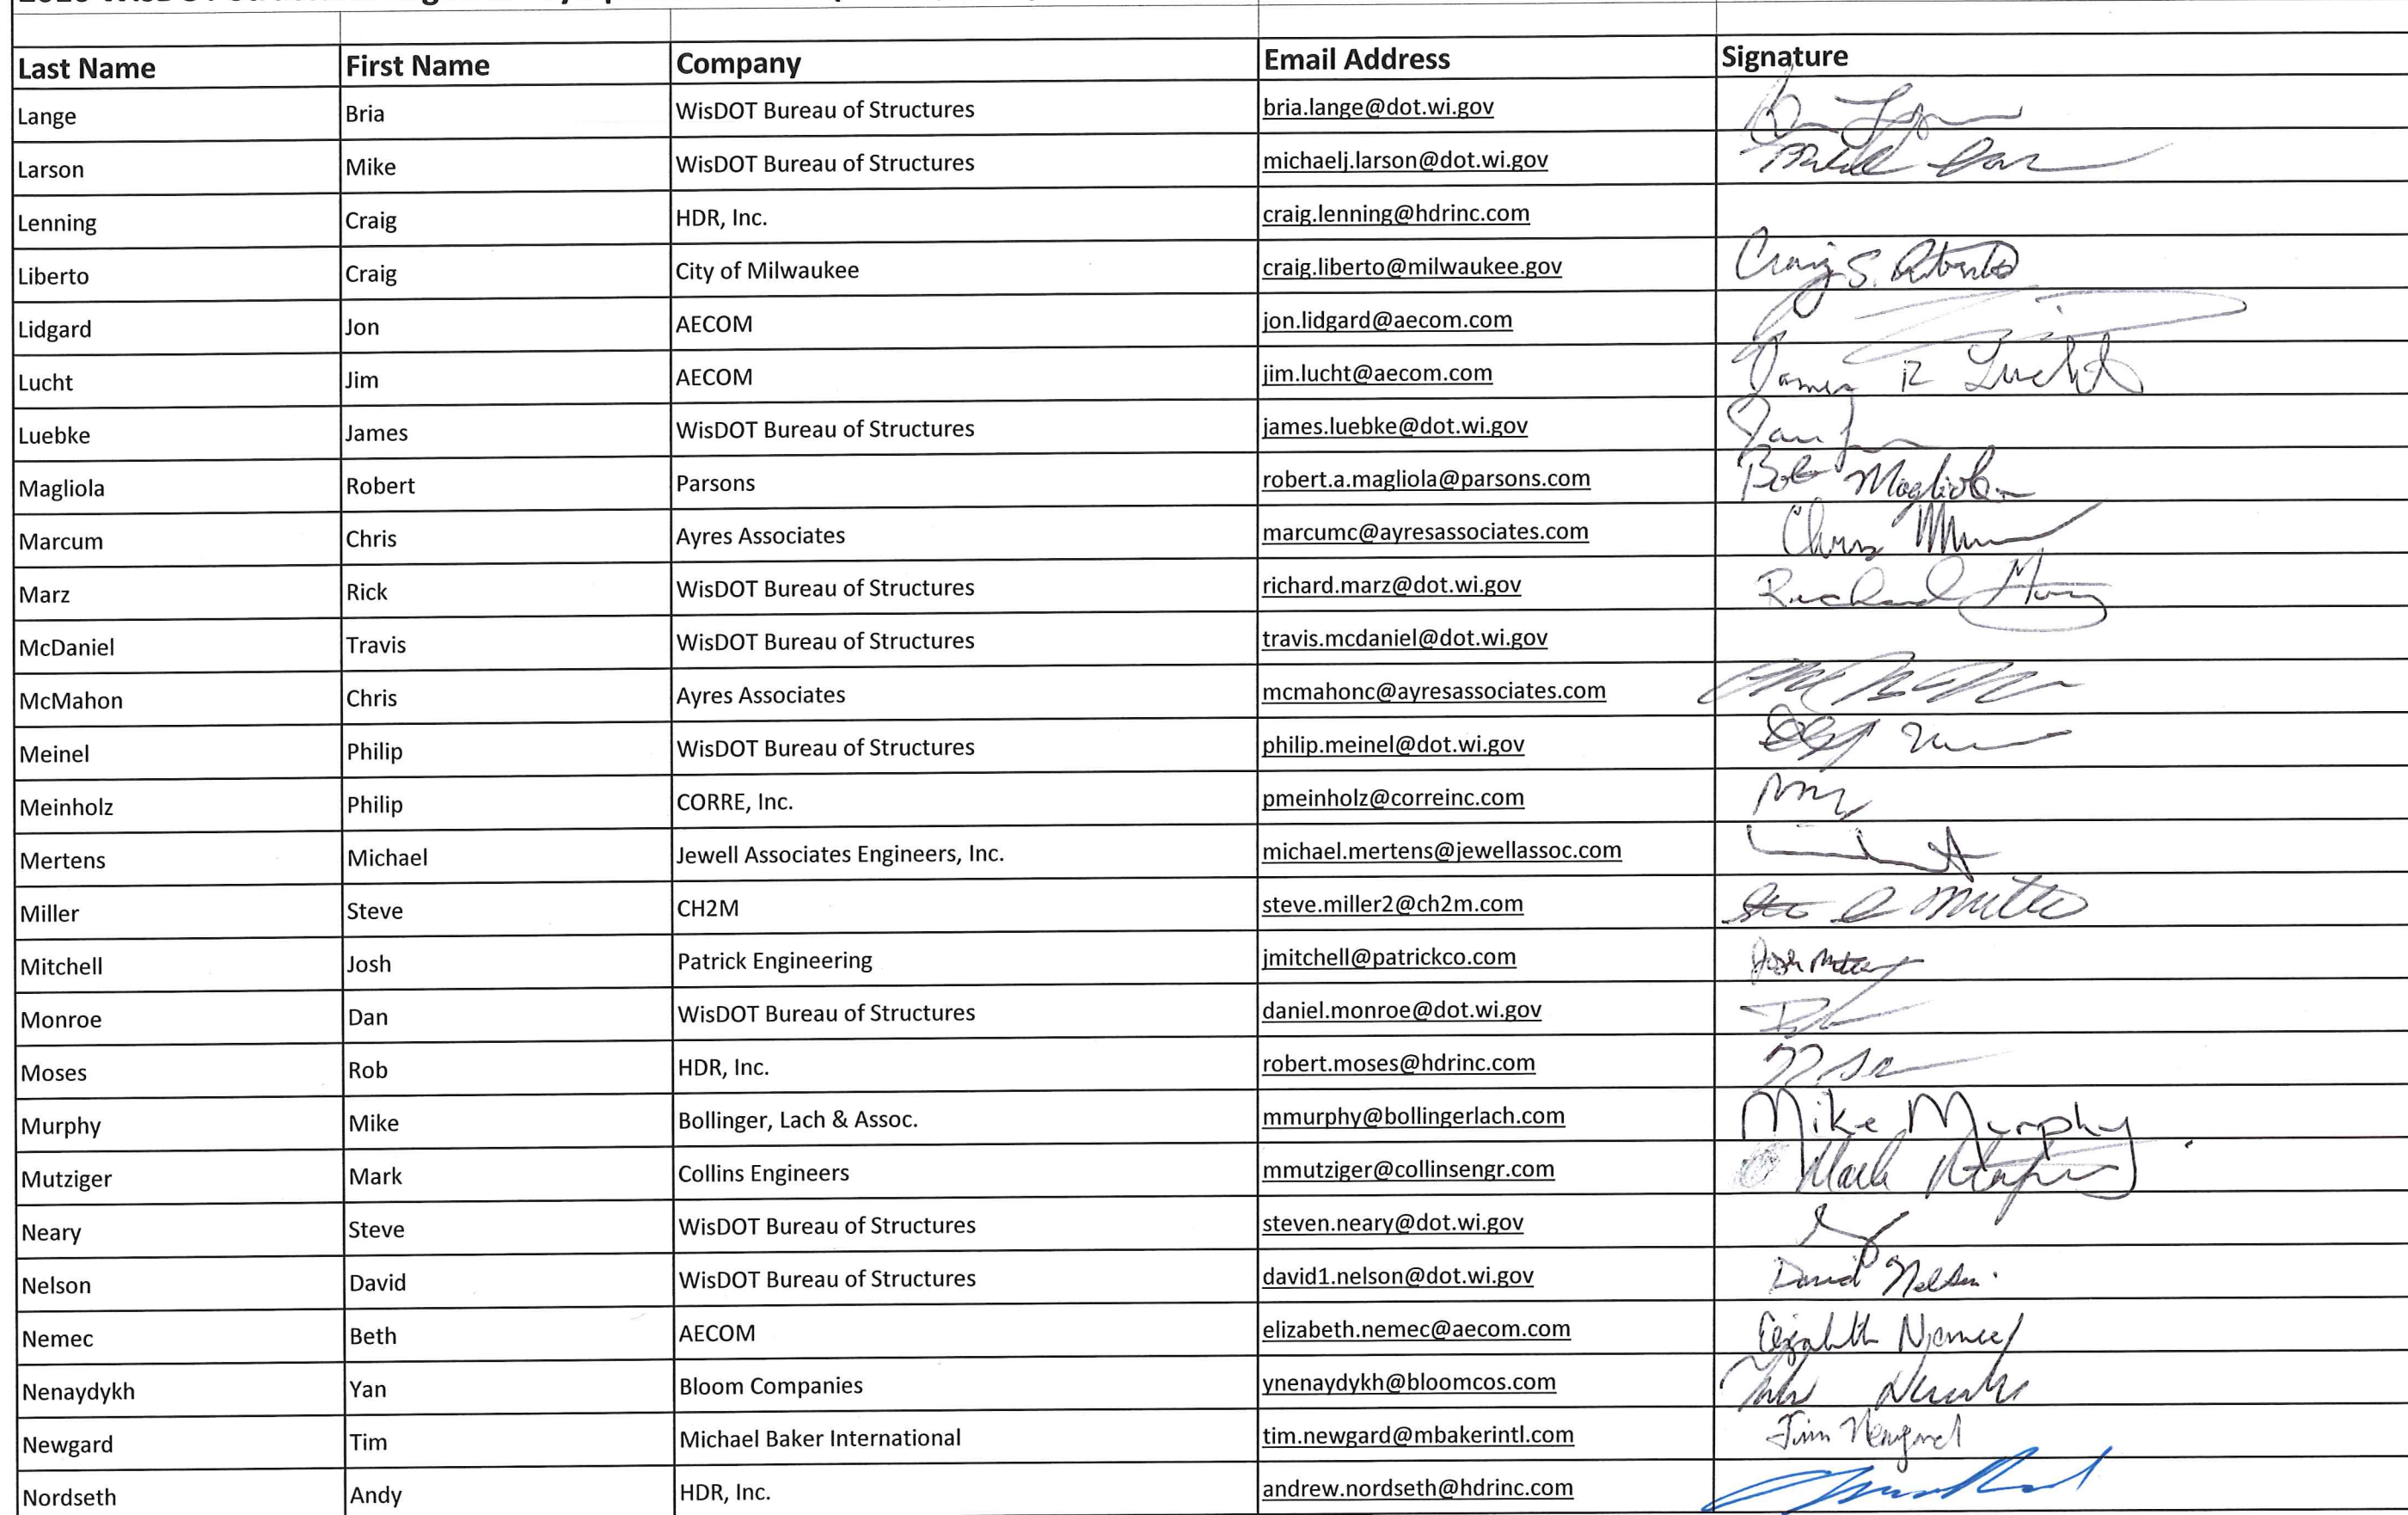 Last Name First Name Company Email Address Signature
Lange Bria WisDOT Bureau of Structures bria.lange@dot.wi.gov
Larson Mike WisDOT Bureau of Structures michaelj.larson@dot.wi.gov
Lenning Craig HDR, Inc. craig.lenning@hdrinc.com
Liberto Craig City of Milwaukee craig.liberto@milwaukee.gov Craig S. Liberto
Lidgard Jon AECOM jon.lidgard@aecom.com
Lucht Jim AECOM jim.lucht@aecom.com James R Lucht
Luebke James WisDOT Bureau of Structures james.luebke@dot.wi.gov
Magliola Robert Parsons robert.a.magliola@parsons.com Bob Magliola
Marcum Chris Ayres Associates marcumc@ayresassociates.com Chris
Marz Rick WisDOT Bureau of Structures richard.marz@dot.wi.gov Richard Marz
McDaniel Travis WisDOT Bureau of Structures travis.mcdaniel@dot.wi.gov
McMahon Chris Ayres Associates mcmahonc@ayresassociates.com
Meinel Philip WisDOT Bureau of Structures philip.meinel@dot.wi.gov
Meinholz Philip CORRE, Inc. pmeinholz@correinc.com
Mertens Michael Jewell Associates Engineers, Inc. michael.mertens@jewellassoc.com
Miller Steve CH2M steve.miller2@ch2m.com
Mitchell Josh Patrick Engineering jmitchell@patrickco.com Josh
Monroe Dan WisDOT Bureau of Structures daniel.monroe@dot.wi.gov
Moses Rob HDR, Inc. robert.moses@hdrinc.com
Murphy Mike Bollinger, Lach & Assoc. mmurphy@bollingerlach.com Mike Murphy
Mutziger Mark Collins Engineers mmutziger@collinsengr.com Mark
Neary Steve WisDOT Bureau of Structures steven.neary@dot.wi.gov
Nelson David WisDOT Bureau of Structures david1.nelson@dot.wi.gov David Nelson
Nemec Beth AECOM elizabeth.nemec@aecom.com Elizabeth Nemec
Nenaydykh Yan Bloom Companies ynenaydykh@bloomcos.com
Newgard Tim Michael Baker International tim.newgard@mbakerintl.com Tim Newgard
Nordseth Andy HDR, Inc. andrew.nordseth@hdrinc.com